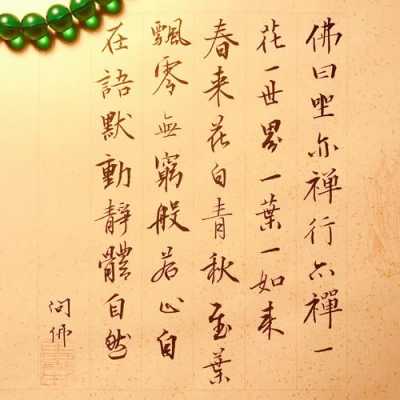 佛曰坐亦禅行亦禪一
花一世界一葉一如来
春来花自青秋至葉
飄零無窮般若心自
在語默動靜體自然
问佛